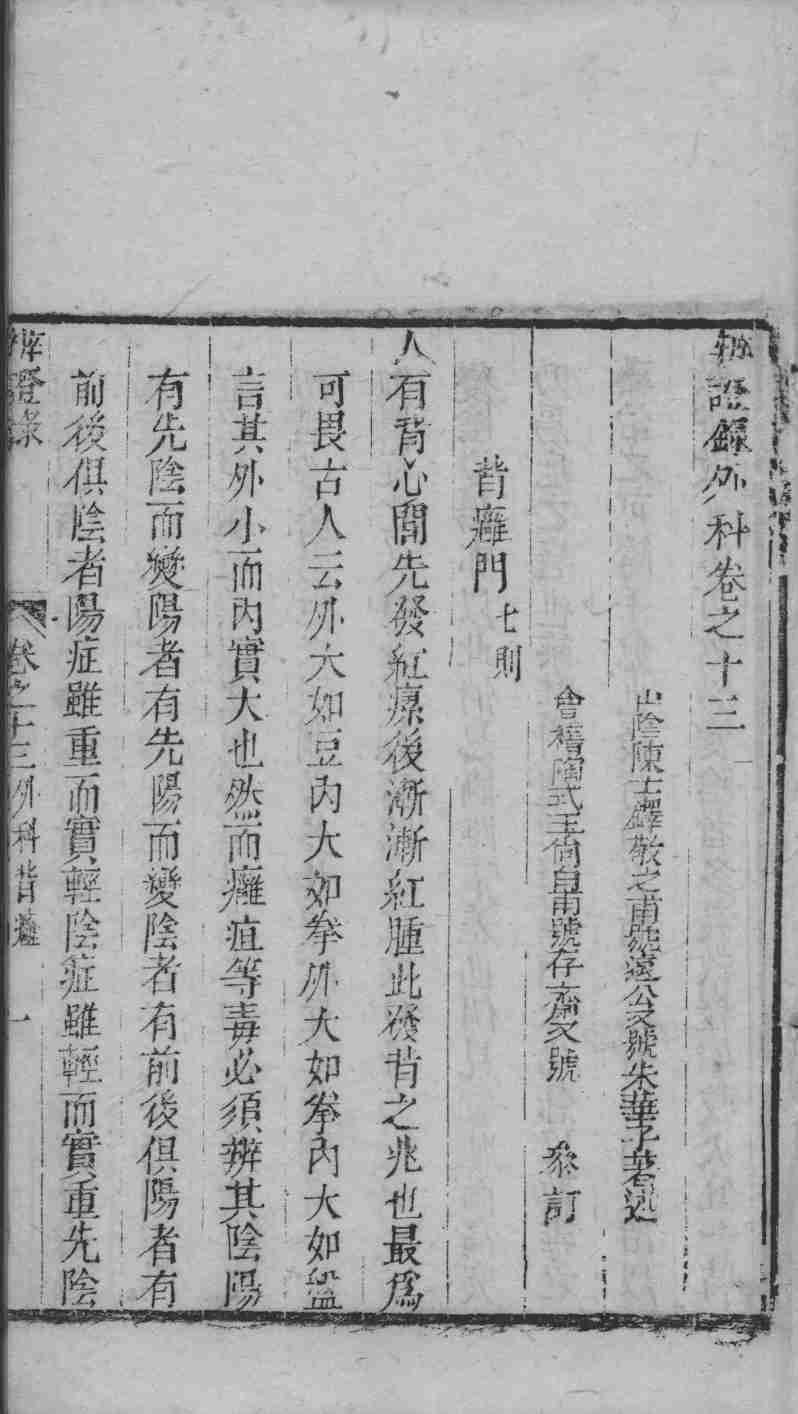 辨證錄外科卷之十三
山陰陳士鐸敬之甫號遠公又號朱華子著述
會稽陶式玉尙白甫號存齋又號　參訂
背癰門七則
人有背心間先發紅瘰後漸漸紅腫此發背之兆也最爲
可畏古人云外大如豆內大如拳外大如拳內大如盌
言其外小而內實大也然而癰疽等毒必須辨其陰陽
有先陰而變陽者有先陽而變陰者有前後俱陽者有
前後俱陰者陽症雖重而實輕陰症雖輕而實重先陰
辨證錄　卷之十三外科背癰　一